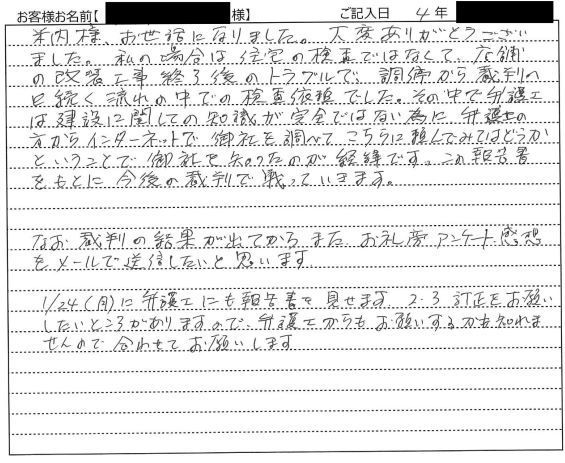 お客様お名前【 様】 ご記入日 4年
米内様、お世話になりました。大変ありがとうござい
ました。私の場合は住宅の検査ではなくて、店舗
の改装工事終了後のトラブルで、調停から裁判へ
と続く流れの中での検査依頼でした。その中で弁護士
は建設に関しての知識が完全ではない為に弁護士の
方からインターネットで御社を調べて こちらに頼んでみてはどうか
ということで御社を知ったのが経緯です。この報告書
をもとに今後の裁判で戦っていきます。
なお裁判の結果が出てから また お礼旁 アンケート感想
をメールで送信したいと思います
1/24(月)に弁護士にも報告書を見せます 2.3 訂正をお願い
したいところがありますので、弁護士からもお願いするかも知れま
せんので 合わせて お願いします